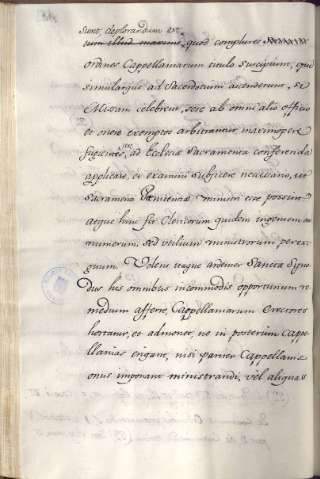 sunt, deplorandum ve-
tum illud maxime, quod complures
ordines Cappellaniarum titulo suscipiunt, qui
simulatque ad Sacerdotium ascenderint, et
Missam celebrent, sese ab omni alio officio
et onere exemptos arbitrantur maximopere
fugientes, ad Ecclesiæ Sacramenta conferenda
applicari, et examini subjicere necessario, ut
Sacramenti ministri esse possint
atque hinc fit Clericorum quidem ingentem
numerum, sed veluti ministrorum, per ex-
guum. Volens itaque Sancta Syno
dus his omnibus incommodis opportunum re-
medium afferre, Cappellaniarum Erectores
hortatur, et admonet, ne in posterum Cappe-
llanias erigant, nisi pariter Cappellanis
onus imponant ministrandi, vel aliquas